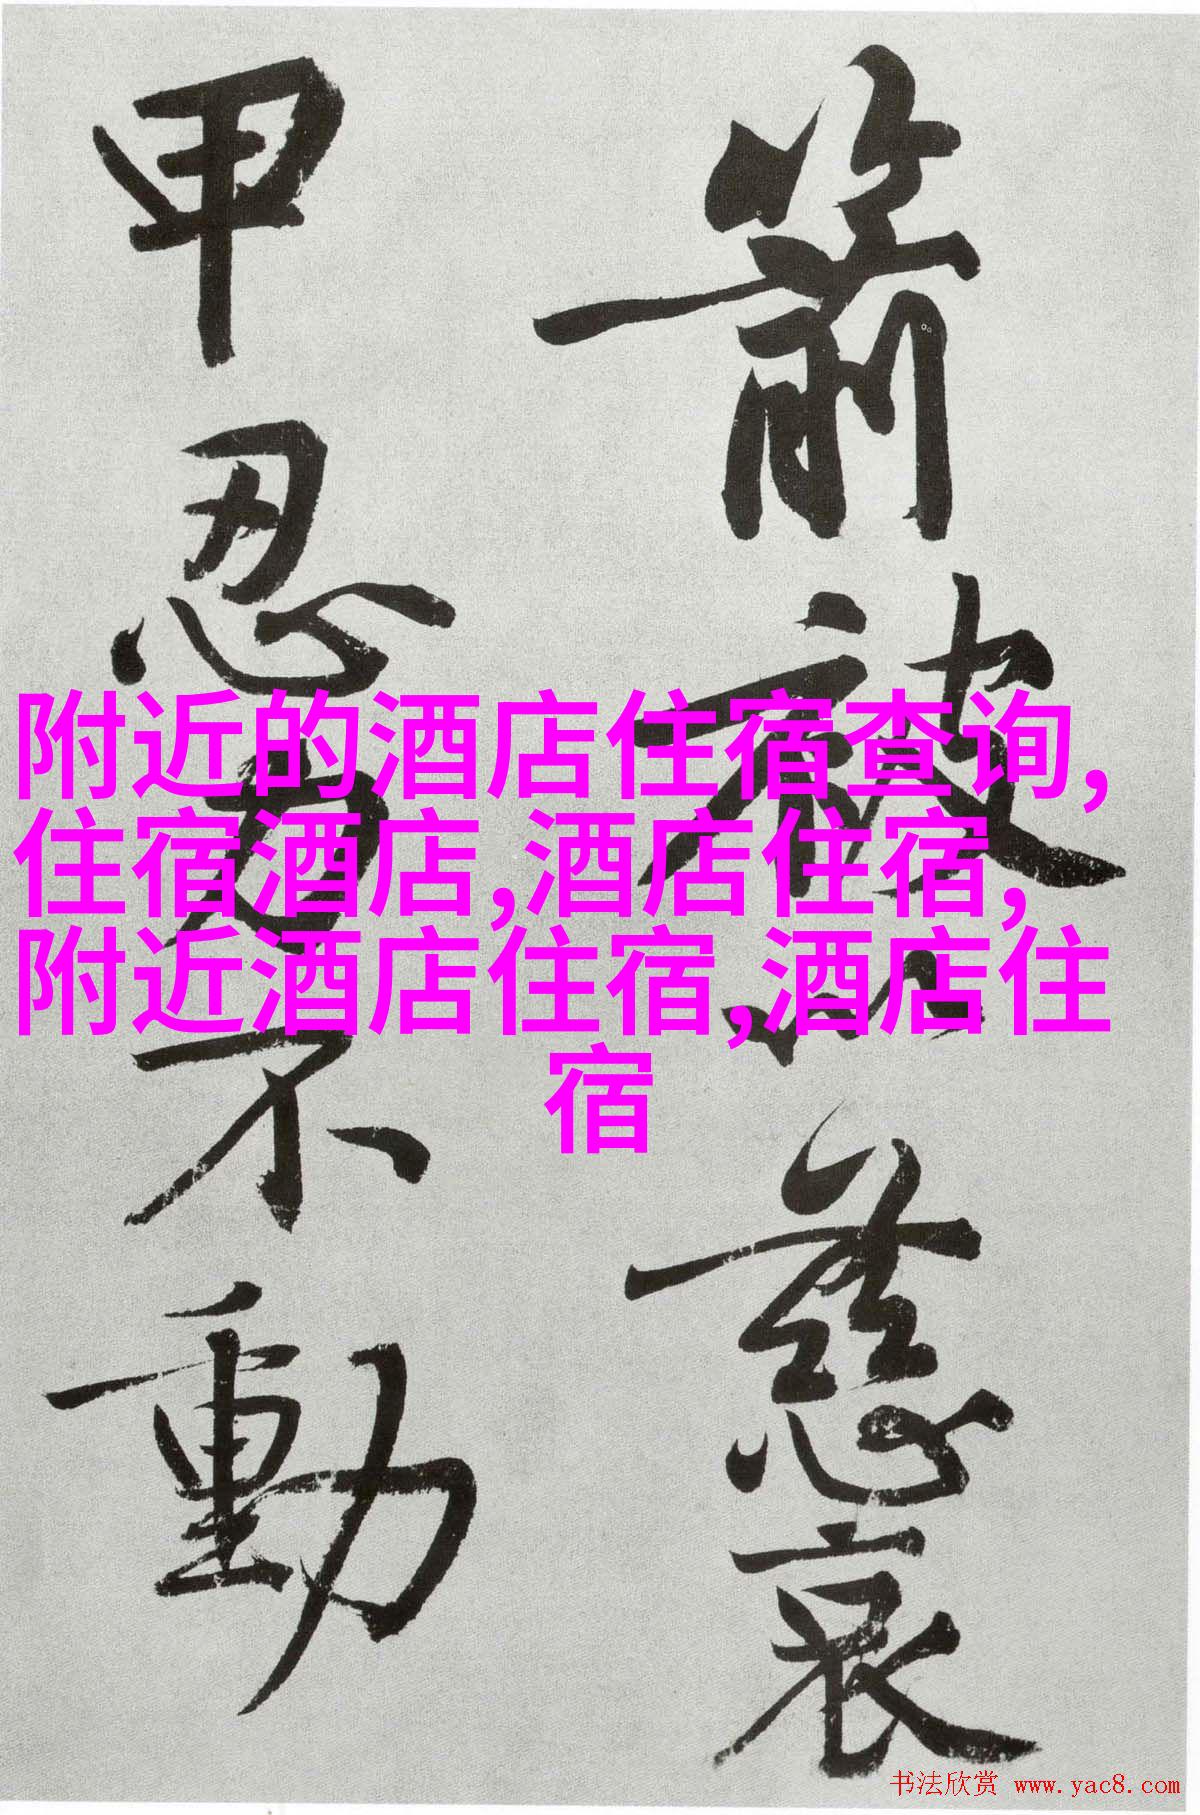 箭被以慈哀
甲忍力不動
附近的酒店住宿查询,
住宿酒店,酒店住宿,
附近酒店住宿,酒店住
宿
书法欣赏 www.yac8.com